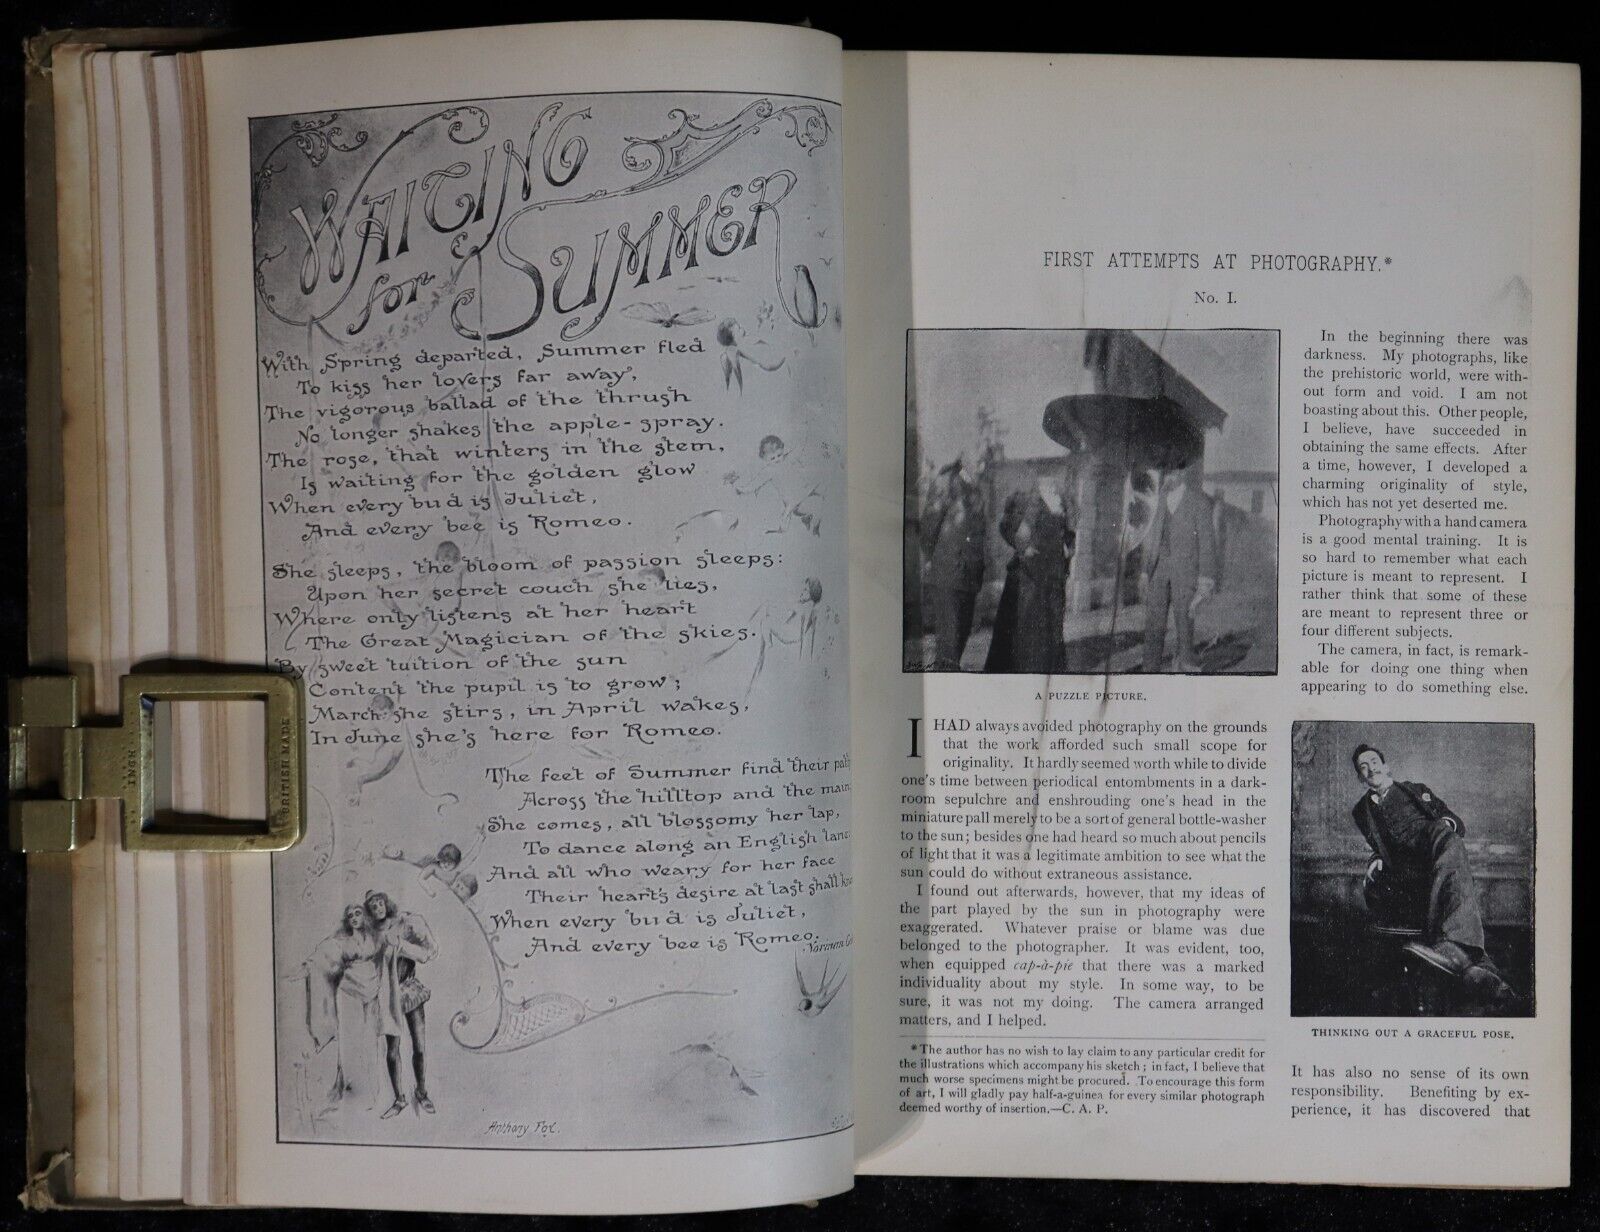 WAITING
for SUMMER
With Spring departed, Summer fled
To kiss her lovers far away,
The vigorous ballad of the thrush
No longer shakes the apple-spray.
The rose, that winters in the stem,
Is waiting for the golden glow
When every bud is Juliet,
And every bee is Romeo.
She sleeps, the bloom of passion sleeps:
Upon her secret couch she lies,
Where only listens at her heart
The Great Magician of the skies.
By sweet tuition of the sun
Content the pupil is to grow;
March she stirs, in April wakes,
In June she's here for Romeo.
The feet of Summer find their path
Across the hilltop and the main,
She comes, all blossomy her lap,
To dance along an English lane
And all who weary for her face
Their heart's desire at last shall
When every bud is Juliet,
And every bee is Romeo.
Norman
Anthony Fox.
BRITISH MADE
FIRST ATTEMPTS AT PHOTOGRAPHY.*
No. I.
A PUZZLE PICTURE.
I HAD always avoided photography on the grounds
that the work afforded such small scope for
originality. It hardly seemed worth while to divide
one's time between periodical entombments in a dark-
room sepulchre and enshrouding one's head in the
miniature pall merely to be a sort of general bottle-washer
to the sun; besides one had heard so much about pencils
of light that it was a legitimate ambition to see what the
sun could do without extraneous assistance.
I found out afterwards, however, that my ideas of
the part played by the sun in photography were
exaggerated. Whatever praise or blame was due
belonged to the photographer. It was evident, too,
when equipped cap-à-pie that there was a marked
individuality about my style. In some way, to be
sure, it was not my doing. The camera arranged
matters, and I helped.
*The author has no wish to lay claim to any particular credit for
the illustrations which accompany his sketch; in fact, I believe that
much worse specimens might be procured. To encourage this form
of art, I will gladly pay half-a-guinea for every similar photograph
deemed worthy of insertion.—C. A. P.
In the beginning there was
darkness. My photographs, like
the prehistoric world, were with-
out form and void. I am not
boasting about this. Other people,
I believe, have succeeded in
obtaining the same effects. After
a time, however, I developed a
charming originality of style,
which has not yet deserted me.
Photography with a hand camera
is a good mental training. It is
so hard to remember what each
picture is meant to represent. I
rather think that some of these
are meant to represent three or
four different subjects.
The camera, in fact, is remark-
able for doing one thing when
appearing to do something else.
THINKING OUT A GRACEFUL POSE.
It has also no sense of its own
responsibility. Benefiting by ex-
perience, it has discovered that